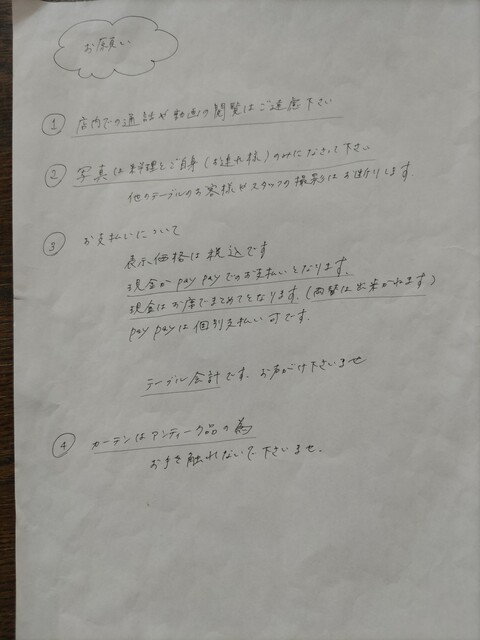 お願い
① 店内での通話や動画の閲覧はご遠慮下さい
② 写真は料理とご自身(お連れ様)のみになさって下さい
他のテーブルのお客様やスタッフの撮影はお断りします.
③ お支払いについて
表示価格は税込です
現金かpay payでのお支払いとなります.
現金はお席でまとめてとなります.(両替は出来かねます)
pay payは個別支払い可です.
テーブル会計です. お声がけ下さいませ
④ カーテンはアンティーク品の為
お手を触れないで下さいませ.